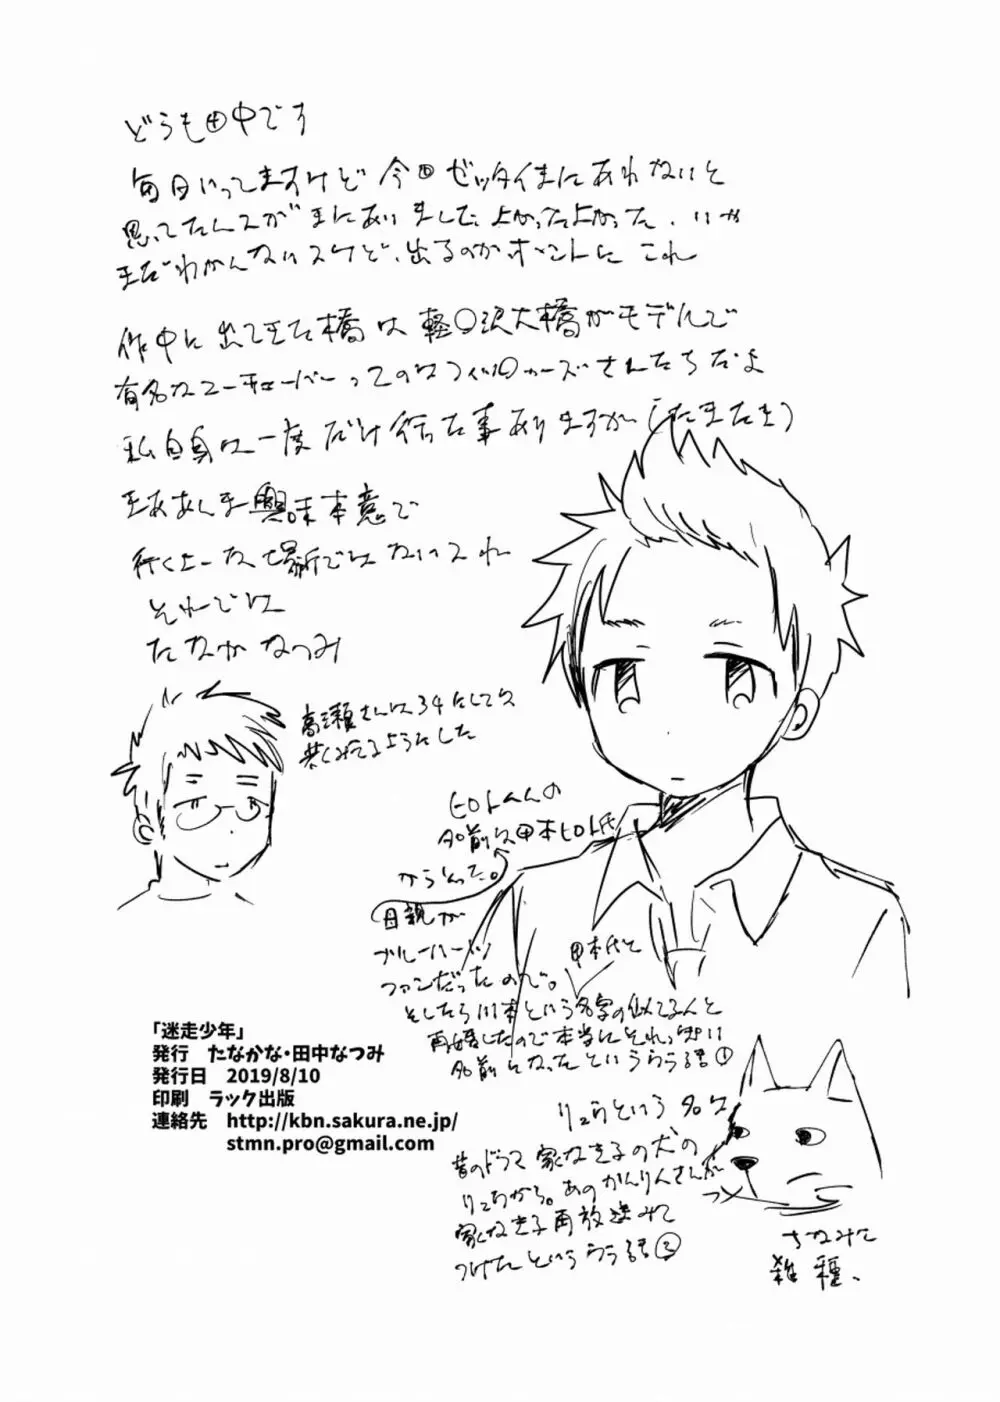 どうも田中です
毎日いってますけど今回ゼッタイまにあわないと
思ってたんスがまにあいました、よかったよかった、いや
まだわかんないスけど、出るのかホントにこれ
作中に出てきた橋は軽○沢大橋がモデルで
有名なユーチューバーってのはフィ○カーズさんたちだよ
私自身は一度だけ行った事ありますが(たまたま)
まああんま興味本意で
行くよーな場所ではないスね
それでは
たなかなつみ
高瀬さんは34にしては
若くみえるようにした
ヒロトくんの
名前は甲本ヒロト氏
からとった。
母親が
ブルーハーツ
ファンだったので。
甲本氏と
そしたら川本という名字の似てる人と
再婚したので本当にそれっぽい
名前になったというウラ話①
「迷走少年」
発行 たなかな・田中なつみ
発行日 2019/8/10
印刷 ラック出版
連絡先 http://kbn.sakura.ne.jp/
stmn.pro@gmail.com
リュウという名は
昔のドラマ家なき子の犬の
リュウから。あのかんりんさんが
家なき子再放送みて
つけたというウラ話②
ちなみに
雑種、